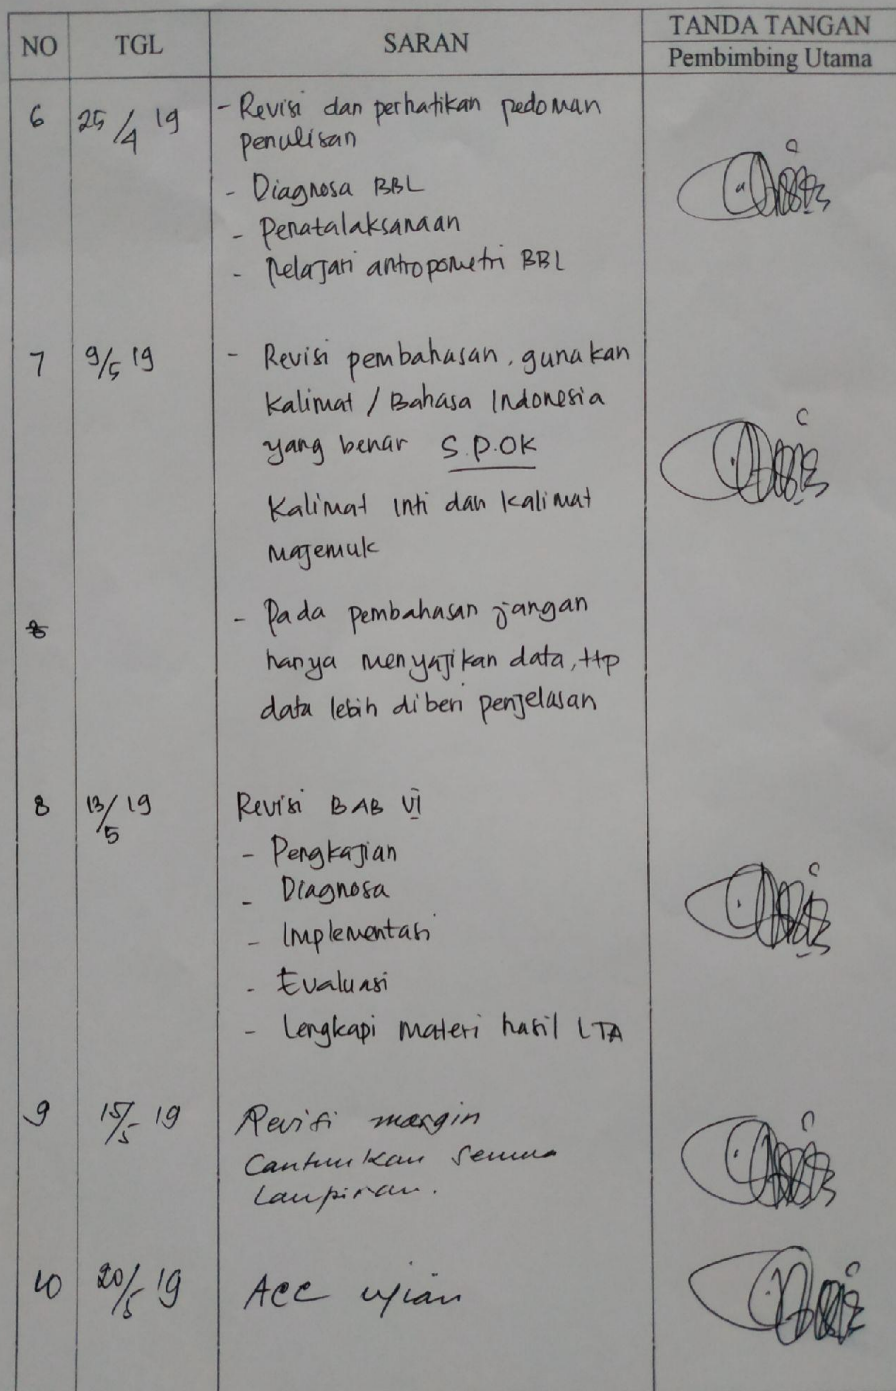 NO TGL SARAN TANDA TANGAN
Pembimbing Utama
6 25/4 19 - Revisi dan perhatikan pedoman
penulisan
- Diagnosa BBL
- Penatalaksanaan
- Pelajari antropometri BBL
7 9/5 19 - Revisi pembahasan, gunakan
Kalimat / Bahasa Indonesia
yang benar S.P.OK
Kalimat inti dan kalimat
majemuk
- Pada pembahasan jangan
hanya menyajikan data, ttp
data lebih diberi penjelasan
8 13/5 19 Revisi BAB VI
- Pengkajian
- Diagnosa
- Implementasi
- Evaluasi
- Lengkapi materi hasil LTA
9 15/5 19 Revisi margin
Cantumkan semua
Lampiran.
10 20/5 19 ACC ujian